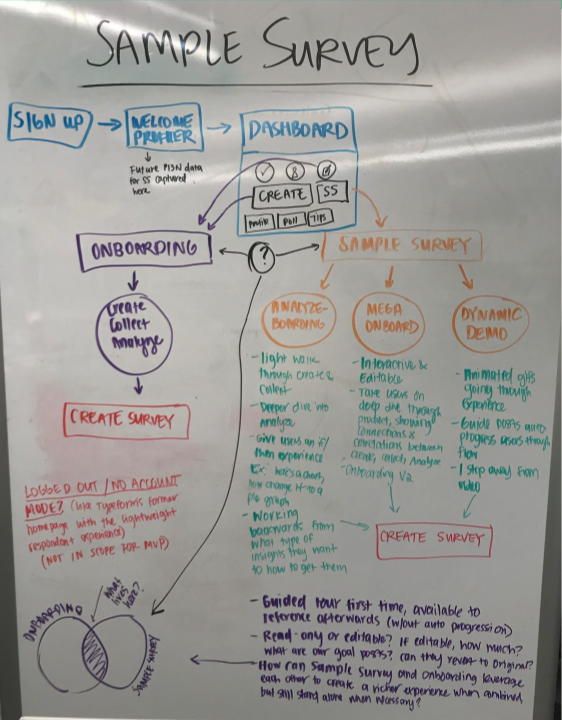 SAMPLE SURVEY
SIGN UP
WELCOME
PROFILER
DASHBOARD
Future P13N data
for SS captured
here
CREATE
SS
Profile
Poll
TIPS
ONBOARDING
?
SAMPLE SURVEY
Create
Collect
Analyze
CREATE SURVEY
ANALYZE-
BOARDING
MEGA
ONBOARD
DYNAMIC
DEMO
- light walk
through create &
collect
- Deeper dive into
Analyze
- Give users an if/
then experience
Ex: here's a chart,
now change it to a
pie graph
- Working
backwards from
what type of
insights they want
to how to get them
- Interactive &
Editable
- Take users on
deep dive through
product, showing
connections &
correlations between
create, collect, Analyze
- Onboarding V2
- Animated gifs
going through
Experience
- Guide posts auto
progress users through
flow
- 1 step away from
video
CREATE SURVEY
LOGGED OUT / NO ACCOUNT
MODE? (like Typeform's former
homepage with the lightweight
respondent experience)
(NOT IN SCOPE FOR MVP)
ONBOARDING
what
lives
here?
SAMPLE SURVEY
- Guided tour first time, available to
reference afterwards (w/out auto progression)
- Read-only or editable? If editable, how much?
what are our goal posts? can they revert to original?
- How can Sample Survey and onboarding leverage
each other to create a richer experience when combined,
but still stand alone when necessary?